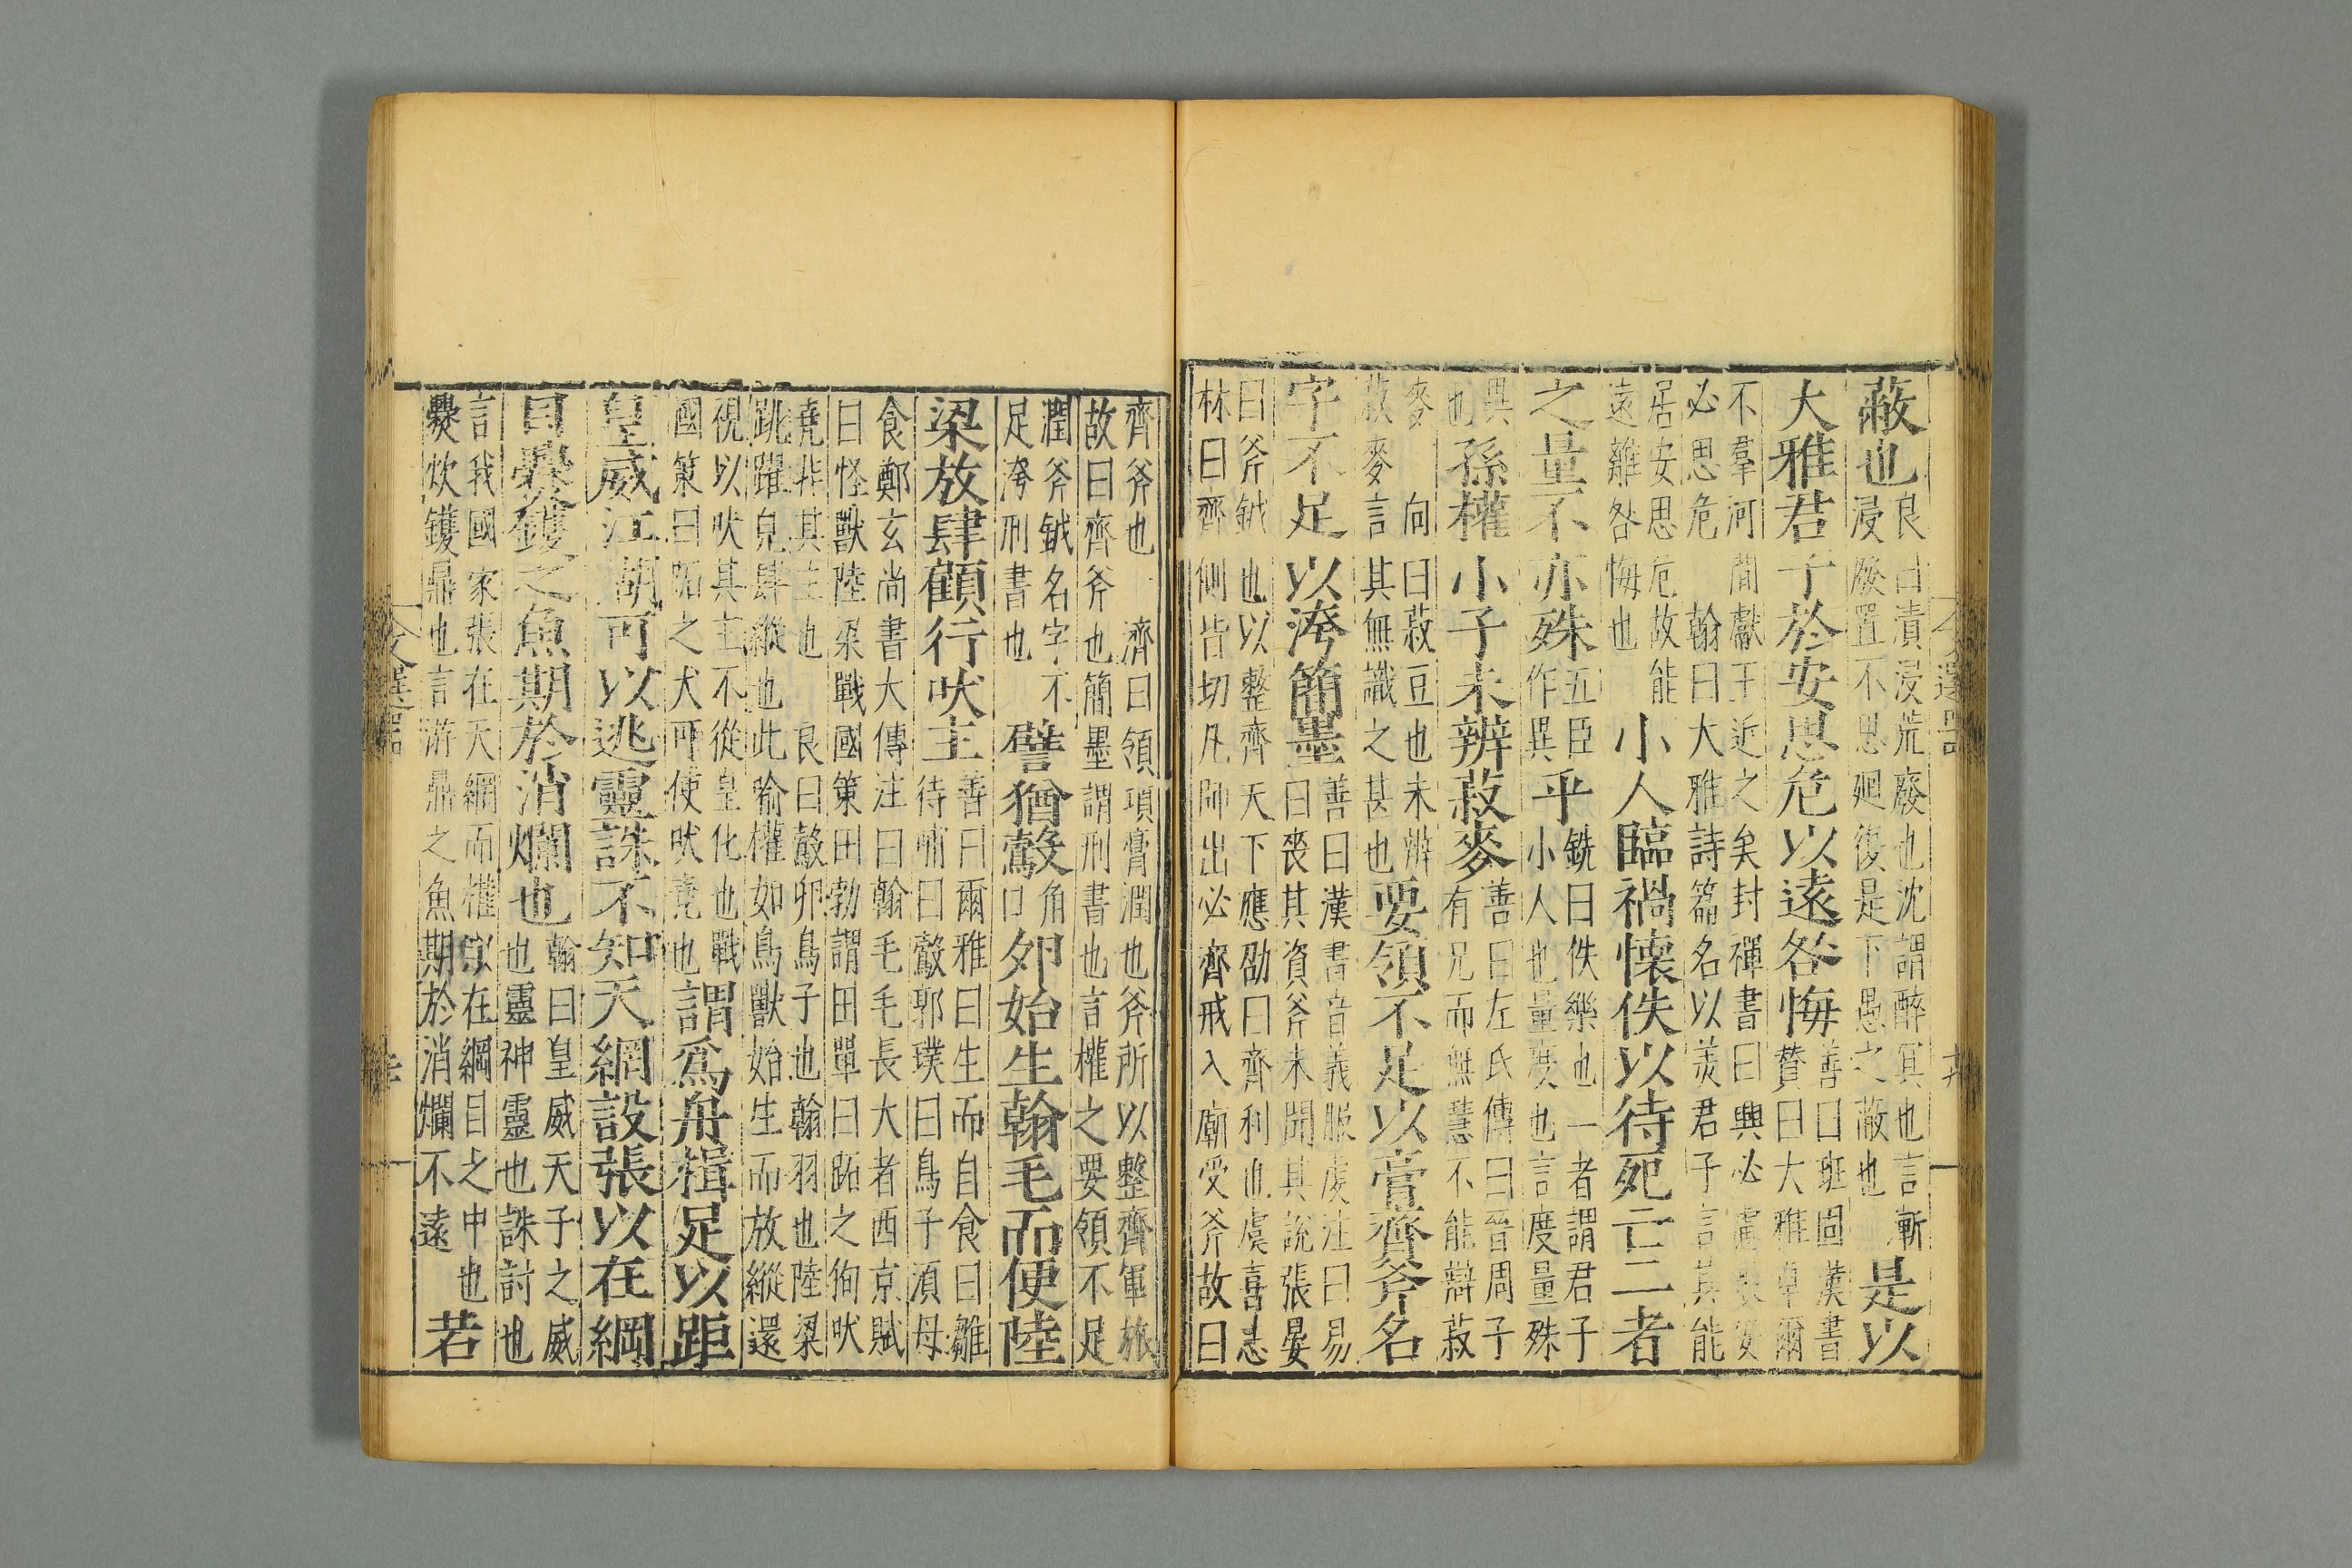 文選四
六
蔽也
良曰漬浸荒廢也沈謂醉冥也言漸
浸廢置不思廻復是下愚之蔽也
是以
大雅君子於安思危以遠咎悔
善曰班固漢書
賛曰大雅卓爾
不羣河間獻王近之矣封禪書曰興必慮衰安
必思危翰曰大雅詩篇名以美君子言其能
居安思危故能
遠離咎悔也
小人臨禍懷佚以待死亡二者
之量不亦殊
五臣
作異
乎
銑曰佚樂也一者謂君子
小人也量度也言度量殊
異
也
孫權小子未辨菽麥
善曰左氏傳曰晉周子
有兄而無慧不能辯菽
麥向曰菽豆也未辨
菽麥言其無識之甚也
要領不足以膏齊斧名
字不足以洿簡墨
善曰漢書音義服虔注曰易
曰喪其資斧未聞其說張晏
曰斧鉞也以整齊天下應劭曰齊利也虞喜志
林曰齊側皆切凡師出必齊戒入廟受斧故曰
齊斧也濟曰領項膏潤也斧所以整齊軍旅
故曰齊斧也簡墨謂刑書也言權之要領不足
潤斧鉞名字不
足洿刑書也
譬猶鷇
角
口
夘始生翰毛而便陸
梁放肆顧行吠主
善曰爾雅曰生而自食曰雛
待哺曰鷇郭璞曰鳥子湏母
食鄭玄尚書大傳注曰翰毛毛長大者西京賦
曰怪獸陸梁戰國策田勃謂田單曰跖之狥吠
堯非其主也良曰鷇卵鳥子也翰羽也陸梁
跳躍皃肆縱也此喻權如鳥獸始生而放縱還
視以吠其主不從皇化也戰
國策曰跖之犬可使吠堯也
謂爲舟楫足以距
皇威江湖可以逃靈誅不知天網設張以在綱
目爨鑊之魚期於消爛也
翰曰皇威天子之威
也靈神靈也誅討也
言我國家張在天網而權以在綱目之中也
爨炊鑊鼎也言游鼎之魚期於消爛不遠
若